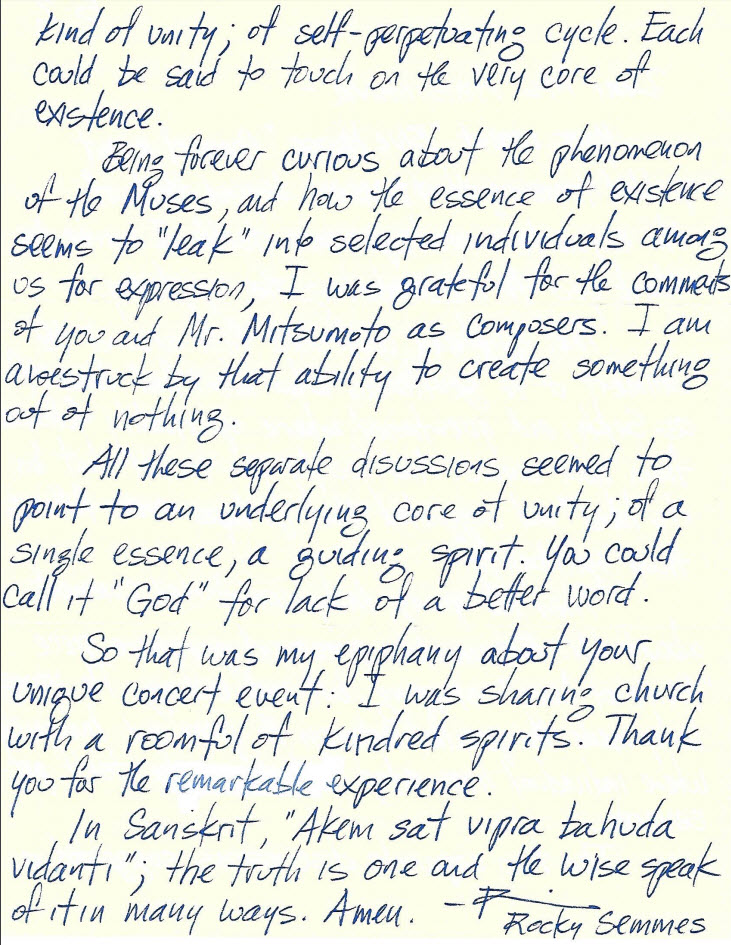 kind of unity; of self-perpetuating cycle. Each
could be said to touch on the very core of
existence.
Being forever curious about the phenomenon
of the Muses, and how the essence of existence
seems to "leak" into selected individuals among
us for expression, I was grateful for the comments
of you and Mr. Mitsumoto as composers. I am
awestruck by that ability to create something
out of nothing.
All these separate disussions seemed to
point to an underlying core of unity; of a
single essence, a guiding spirit. You could
call it "God" for lack of a better word.
So that was my epiphany about your
unique concert event: I was sharing church
with a roomful of kindred spirits. Thank
you for the remarkable experience.
In Sanskrit, "Akem sat vipra bahuda
vidanti"; the truth is one and the wise speak
of it in many ways. Amen. - R
Rocky Semmes